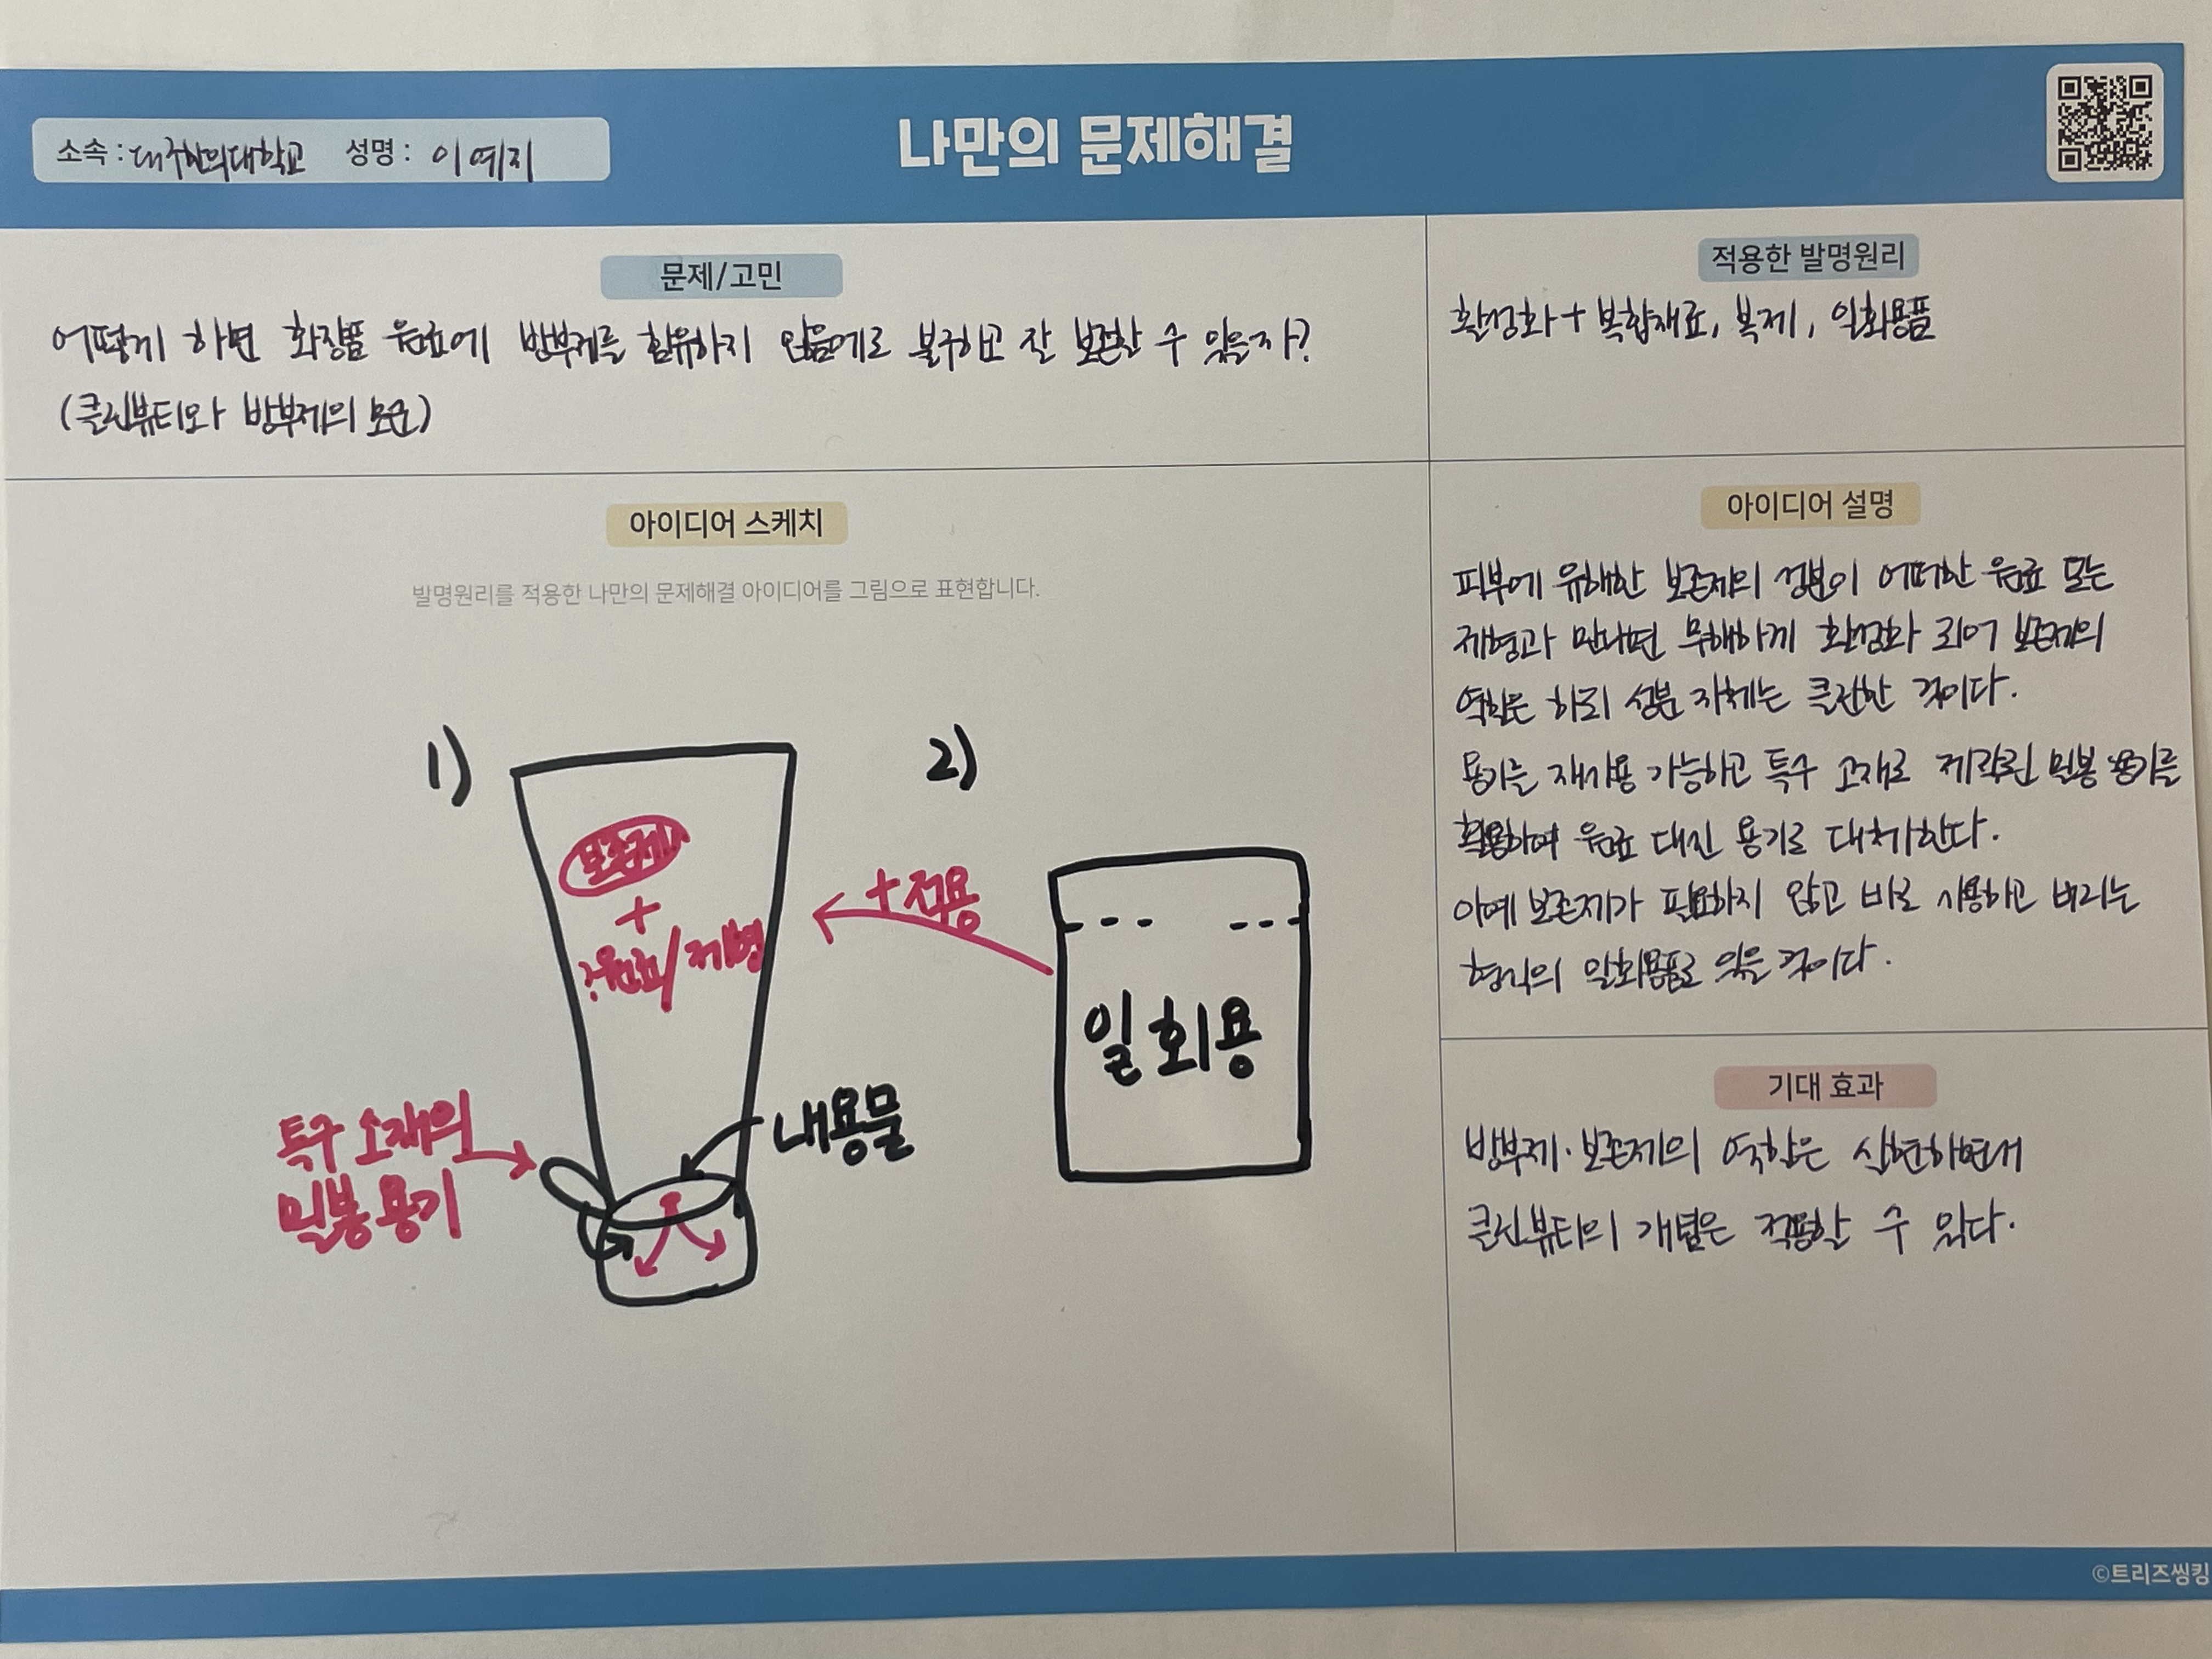 소속 : 대구한의대학교 성명 : 이예지
나만의 문제해결
문제/고민
어떻게 하면 화장품 원료에 방부제를 함유하지 않음에도 불구하고 잘 보존할 수 있을까?
(클린뷰티와 방부제의 모순)
적용한 발명원리
활성화 + 복합재료, 복제, 일회용품
아이디어 스케치
발명원리를 적용한 나만의 문제해결 아이디어를 그림으로 표현합니다.
1)
보존제
+
?원료/제형
특수 소재의
밀봉 용기
내용물
+적용
2)
일회용
아이디어 설명
피부에 유해한 보존제의 성분이 어떠한 원료 또는
제형과 만나면 무해하게 활성화 되어 보존제의
역할은 하되 성분 자체는 클린한 것이다.
용기를 재사용 가능하고 특수 소재로 제작된 밀봉 용기를
활용하여 원료 대신 용기로 대체한다.
아예 보존제가 필요하지 않고 바로 사용하고 버리는
형식의 일회용품도 있을 것이다.
기대 효과
방부제·보존제의 역할은 실현하면서
클린뷰티의 개념은 적용할 수 있다.
©트리즈씽킹